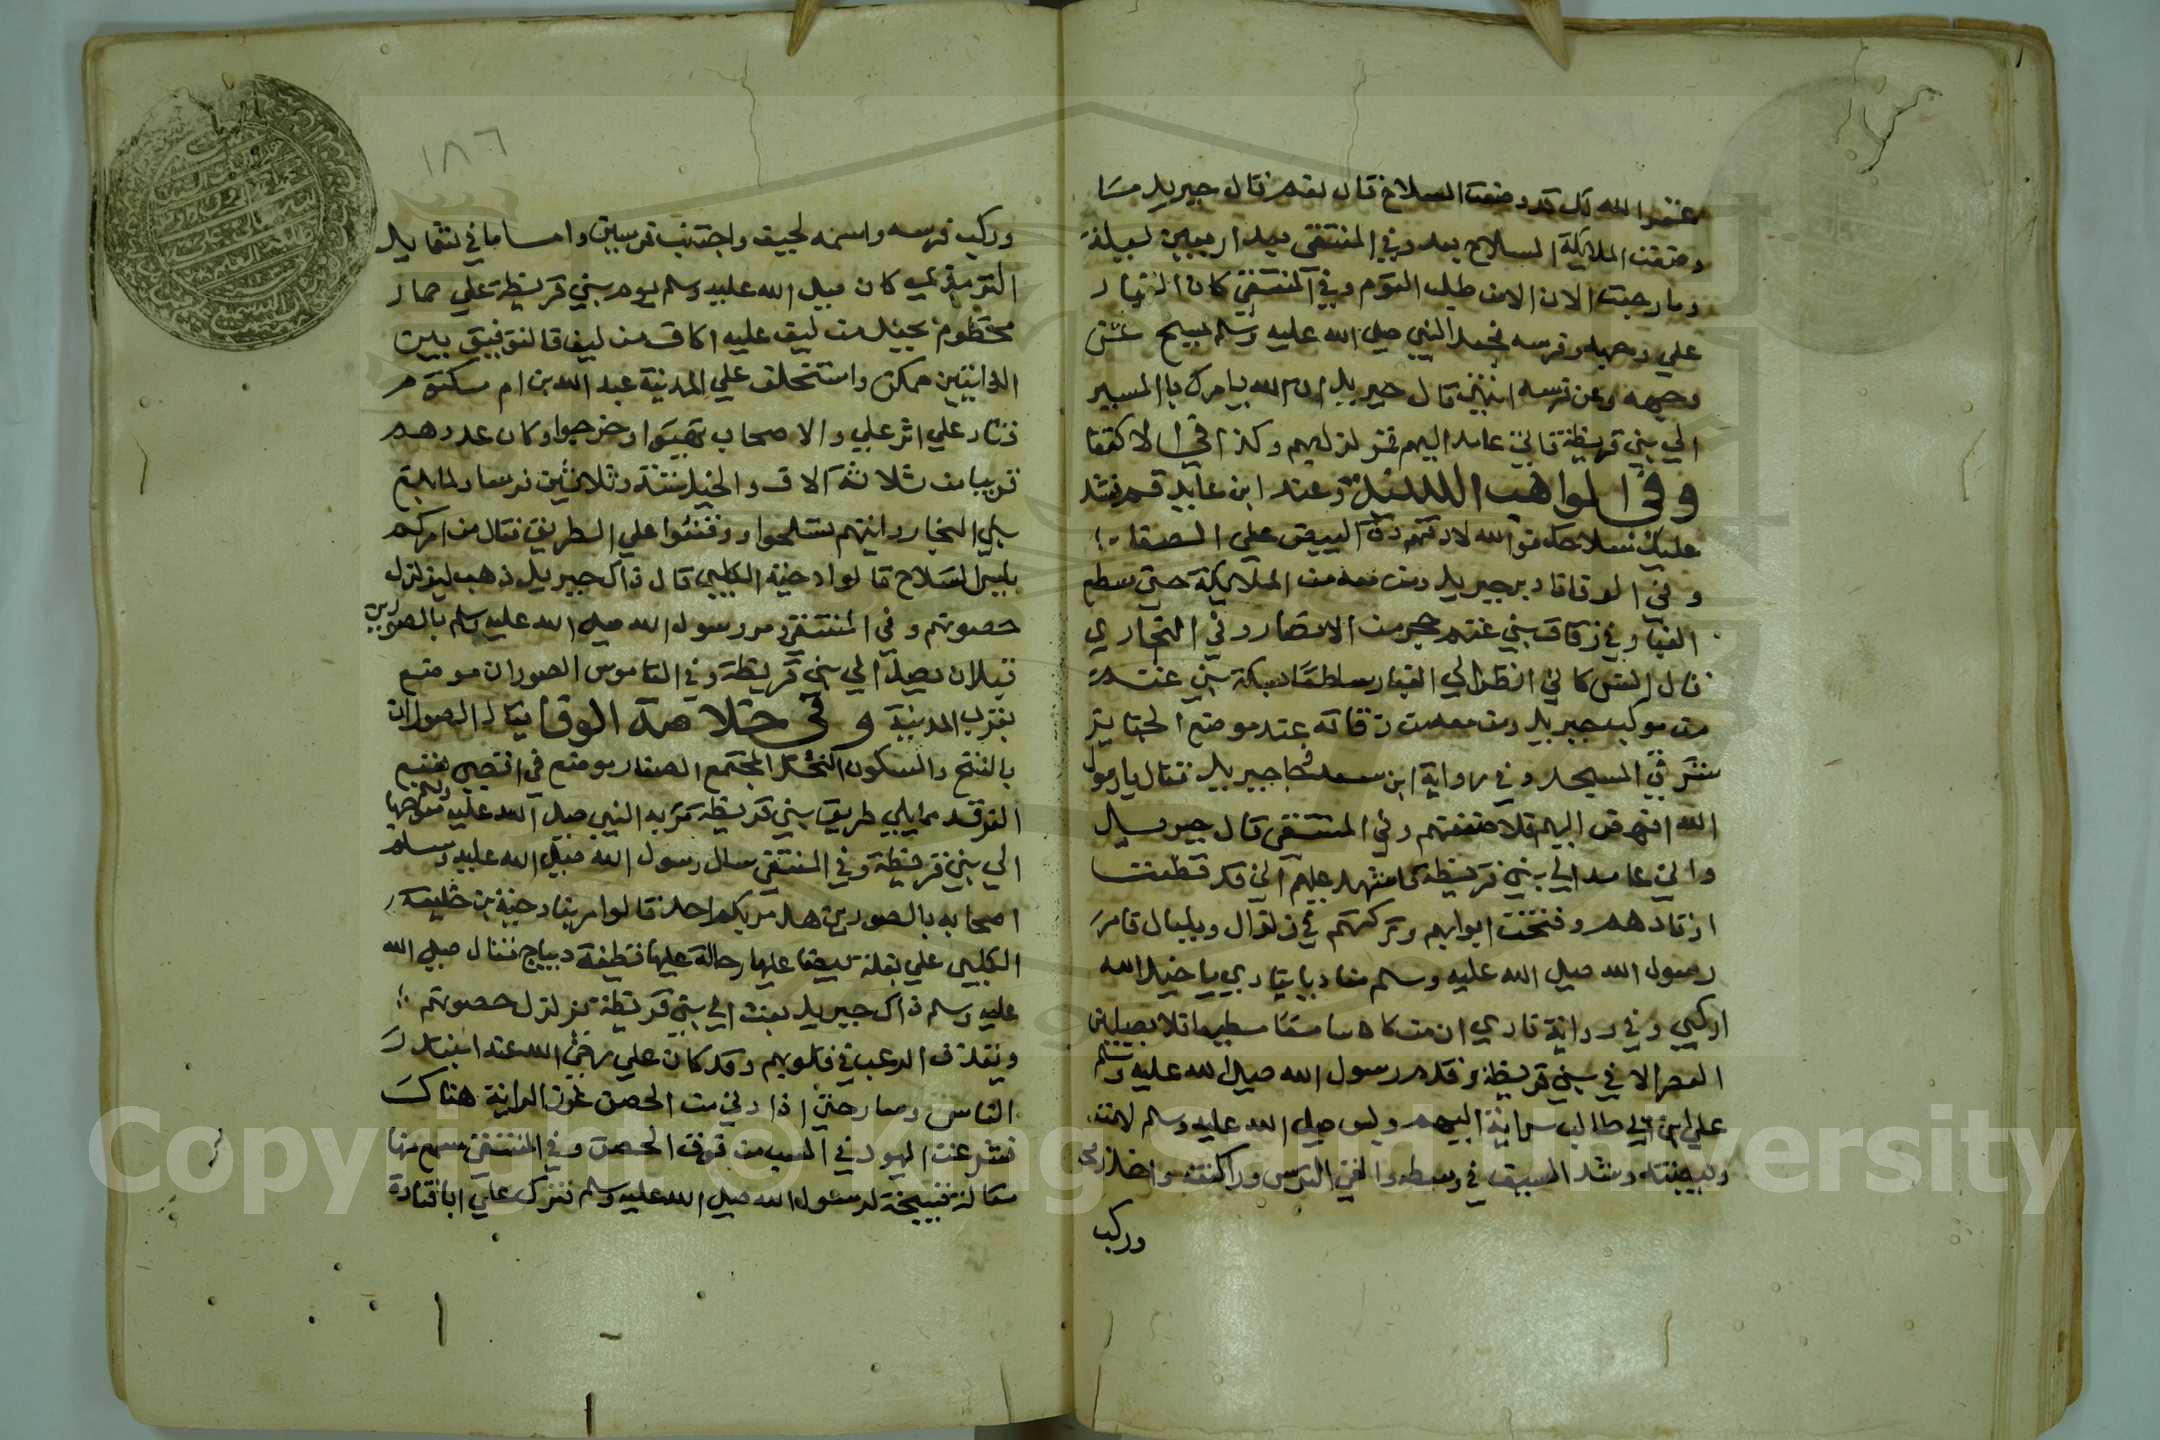 غفر الله لك قد وضعت السلاح قال نعم قال جبريل ما
وضعت الملائكة السلاح بعد وفي المنتقى بعد اربعين ليلة
وما رجعت الان الا من طلب القوم وفي المنتقى كان الغبار
علي وجهه وفرسه فجعل النبي صلى الله عليه وسلم يمسح عن
وجهه وعن فرسه قال جبريل ان الله يأمرك بالمسير
الي بني قريظة فاني عامد اليهم فمزلزلهم وكذا في الاكتفا
وفي المواهب اللدنية وعند ابن عايد قم فشد
عليك سلاحك فوالله لادقنهم دق البيض علي الصفا
وفي الوفا فادبر جبريل ومن معه من الملائكة حتي سطع
الغبار في زقاق بني غنم من الانصار وفي البخاري
قال انس كاني انظر الي الغبار ساطعا بسكة بني غنم
من موكب جبريل ومن معه عند موضع الجنايز
شرقي المسجد وفي رواية ابن سعد جا جبريل فقال يا رسول
الله انهض اليهم فلاضعضعنهم وفي المنتقى قال جبريل
واني عامد الي بني قريظة اني قد قطعت
اوتادهم وفتحت ابوابهم وتركتهم في زلزال وبلبال فامر
رسول الله صلى الله عليه وسلم مناديا ينادي يا خيل الله
اركبي وفي رواية نادي ان من كان سامعا مطيعا فلا يصلين
العصر الا في بني قريظة وقدم رسول الله صلى الله عليه وسلم
علي ابن ابي طالب براية اليهم ولبس صلى الله عليه وسلم لامته
وبيضته وشد السيف في وسطه والقي الترس وراء كتفه واخذ رمحه
وركب
١٨٦
وركب فرسه واسمه لحيف واجتنب فرسين واما ما في شمايل
الترمذي كان صلى الله عليه وسلم يوم بني قريظة علي حمار
مخطوم بحبل من ليف عليه اكاف من ليف فالتوفيق بين
الروايتين ممكن واستخلف علي المدينة عبد الله بن ام مكتوم
فسار علي اثر علي والاصحاب تهيئوا وخرجوا وكان عددهم
قريبا من ثلاثة آلاف والخيل ستة وثلاثين فرسا ولما بلغ
بني النجار رأيهم تسلحوا ووقفوا علي الطريق فقال من امركم
بلبس السلاح قالوا دحية الكلبي قال ذاك جبريل ذهب ليزلزل
حصونهم وفي المنتقى مر رسول الله صلى الله عليه وسلم بالصورين
قبل ان يصل الي بني قريظة وفي القاموس الصوران موضع
بقرب المدينة وفي خلاصة الوفا يقال الصوران
بالفتح والسكون النخل المجتمع الصغار موضع في اقصي بقيع
الغرقد مما يلي طريق بني قريظة مر به النبي صلى الله عليه وسلم متوجها
الي بني قريظة وفي المنتقى سال رسول الله صلى الله عليه وسلم
اصحابه بالصورين هل مر بكم احد قالوا مر بنا دحية بن خليفة
الكلبي علي بغلة بيضا عليها رحالة عليها قطيفة ديباج فقال صلى الله
عليه وسلم ذاك جبريل بعث الي بني قريظة يزلزل حصونهم
ويقذف الرعب في قلوبهم وقد كان علي رضي الله عنه ابتدر
الناس وسار حتي اذا دني من الحصن غرز الراية هناك
فشرعت اليهود في السب من فوق الحصن وفي المنتقى سمع منها
مقالة قبيحة لرسول الله صلى الله عليه وسلم فترك علي ابا قتادة
Copyright © King Saud University